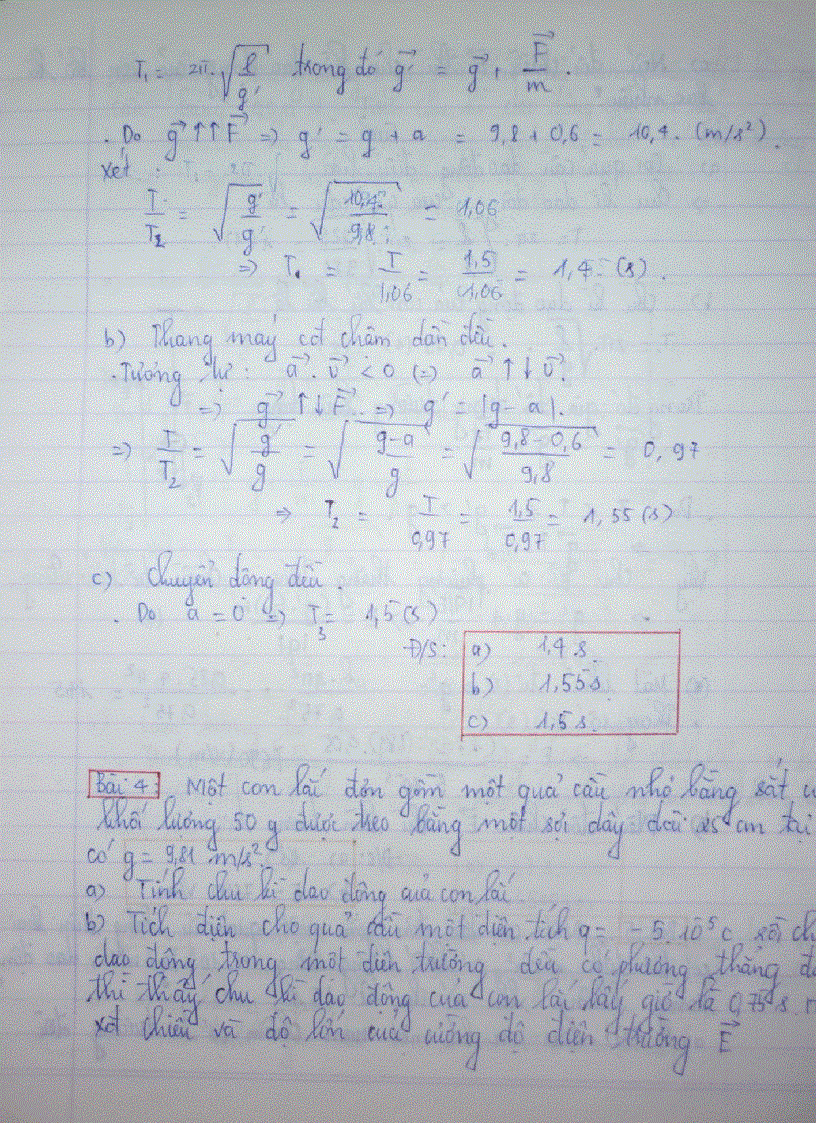 T₁ = 2π √(l/g') trong đó g⃗' = g⃗ + F⃗/m.
. Do g⃗ ↑↑ F⃗ => g' = g + a = 9,8 + 0,6 = 10,4. (m/s²).
xét :
T/T₂ = √(g'/g) = √(10,4/9,8) = 1,06
=> T₁ = T/1,06 = 1,5/1,06 = 1,4 (s).
b) Thang máy cđ chậm dần đều.
. Tương tự : a⃗ . v⃗ < 0 (=) a⃗ ↑↓ v⃗.
=> g⃗ ↑↓ F⃗ => g' = |g - a|.
=> T/T₂ = √(g'/g) = √((g-a)/g) = √((9,8-0,6)/9,8) = 0,97
=> T₂ = T/0,97 = 1,5/0,97 = 1,55 (s)
c) Chuyển động đều.
. Do a = 0 => T₃ = 1,5 (s)
Đ/S: a) 1,4 s.
b) 1,55 s.
c) 1,5 s.
Bài 4: Một con lắc đơn gồm một quả cầu nhỏ bằng sắt
khối lượng 50 g được treo bằng một sợi dây dài cm tại
có g = 9,81 m/s².
a) Tính chu kì dao động của con lắc.
b) Tích điện cho quả cầu một điện tích q = -5.10⁻⁵ C
dao động trong một điện trường đều có phương thẳng
thì thấy chu kì dao động của con lắc lấy giờ là 0,75 s.
xđ chiều và độ lớn của cường độ điện trường E⃗